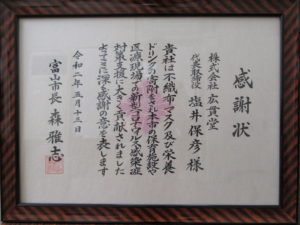 感謝状
株式会社 広貫堂
代表取締役 塩井保彦様
貴社は不織布マスク及び栄養
ドリンクの寄附をされ本市の保育施設や
医療現場での新型コロナウイルス感染症
対策支援に大きく貢献されました
よってここに深く感謝の意を表します
令和二年五月十三日
富山市長 森雅志